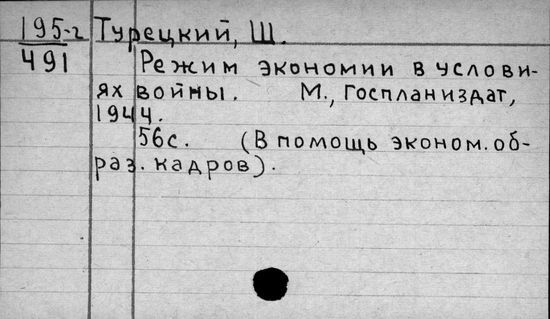 195-г Турецкий, Ш.
491 Режим экономии в услови-
ях войны. М., Госпланиздат,
1944.
56с. (В помощь эконом. об-
раз. кадров).